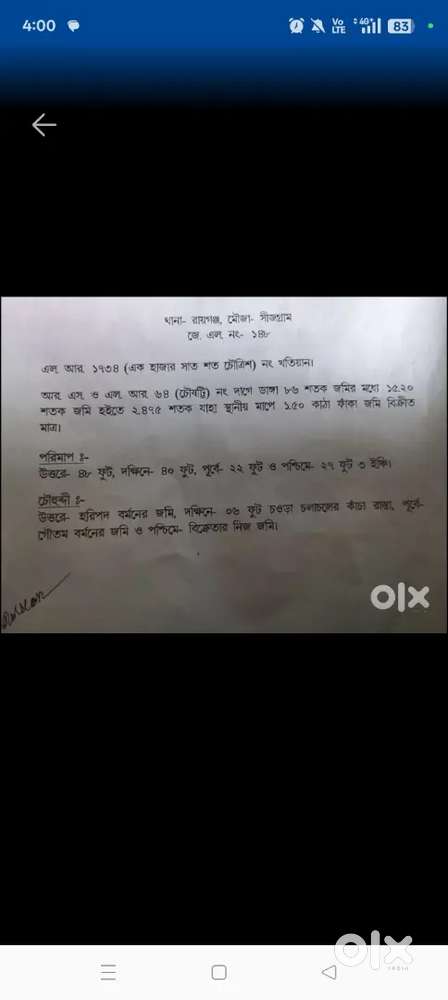 4:00
Vo
LTE
4G+
83
থানা- রায়গঞ্জ, মৌজা- সীজগ্রাম
জে. এল. নং- ১৪৮
এল. আর. ১৭৩৪ (এক হাজার সাত শত চৌত্রিশ) নং খতিয়ান।
আর. এস. ও এল. আর. ৬৪ (চৌষট্টি) নং দাগে ডাঙ্গা ৮৬ শতক জমির মধ্যে ১৫.২০
শতক জমি হইতে ২.৪৭৫ শতক যাহা স্থনীয় মাপে ১.৫০ কাঠা ফাঁকা জমি বিক্রীত
মাত্র।
পরিমাপ ঃ-
উত্তরে- ৪৮ ফুট, দক্ষিনে- ৪০ ফুট, পূর্বে- ২২ ফুট ও পশ্চিমে- ২৭ ফুট ৩ ইঞ্চি।
চৌহুদ্দী ঃ-
উত্তরে- হরিপদ বর্মনের জমি, দক্ষিনে- ০৬ ফুট চওড়া চলাচলের কাঁচা রাস্তা, পূর্বে-
গৌতম বর্মনের জমি ও পশ্চিমে- বিক্রেতার নিজ জমি।
olx
olx
INDIA